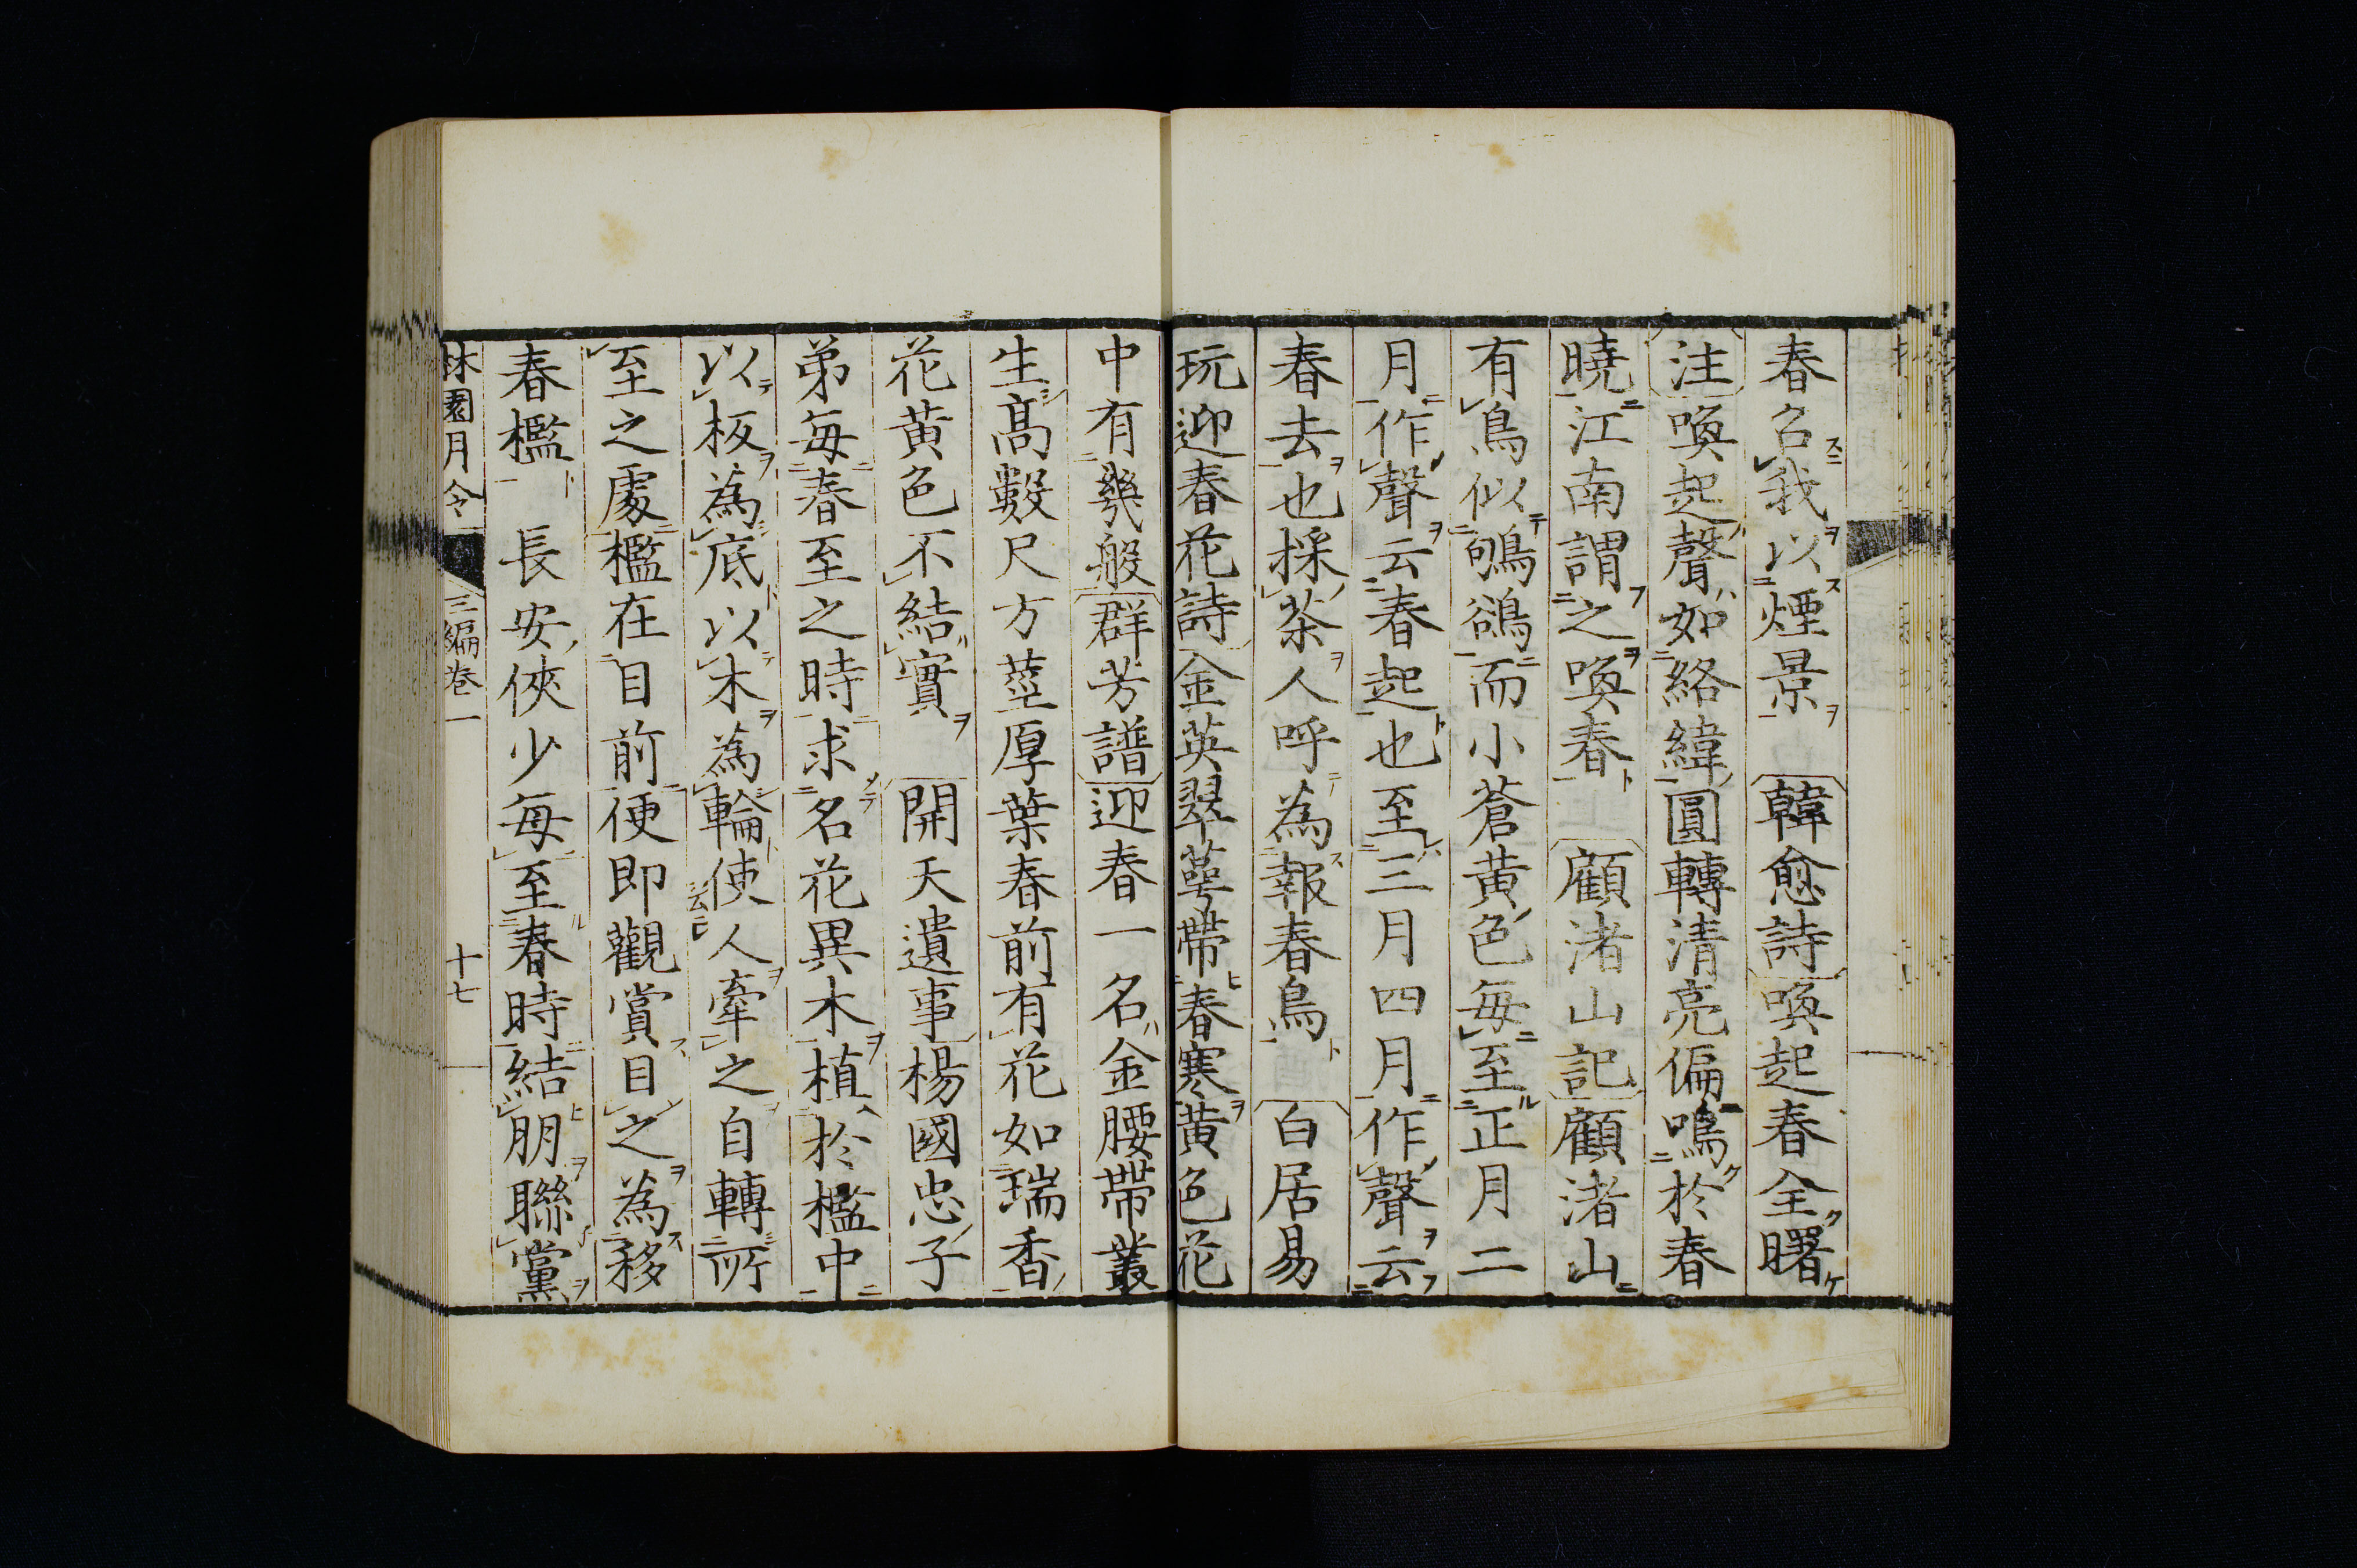 春召我以煙景　韓愈詩喚起春全曙
注喚起聲如絡緯圓轉清亮偏鳴於春
曉江南謂之喚春　顧渚山記顧渚山
有鳥似鴝鵒而小蒼黄色毎至正月二
月作聲云春起也至三月四月作聲云
春去也採茶人呼為報春鳥　白居易
玩迎春花詩金英翠萼帶春寒黄色花
中有幾般群芳譜迎春一名金腰帶叢
生髙數尺方莖厚葉春前有花如瑞香
花黄色不結實　開天遺事楊國忠子
弟毎春至之時求名花異木植於檻中
以板為底以木為輪使人牽之自轉所
至之處檻在目前便即觀賞目之為移
春檻　長安俠少毎至春時結朋聯黨
林園月令　三編巻一　十七